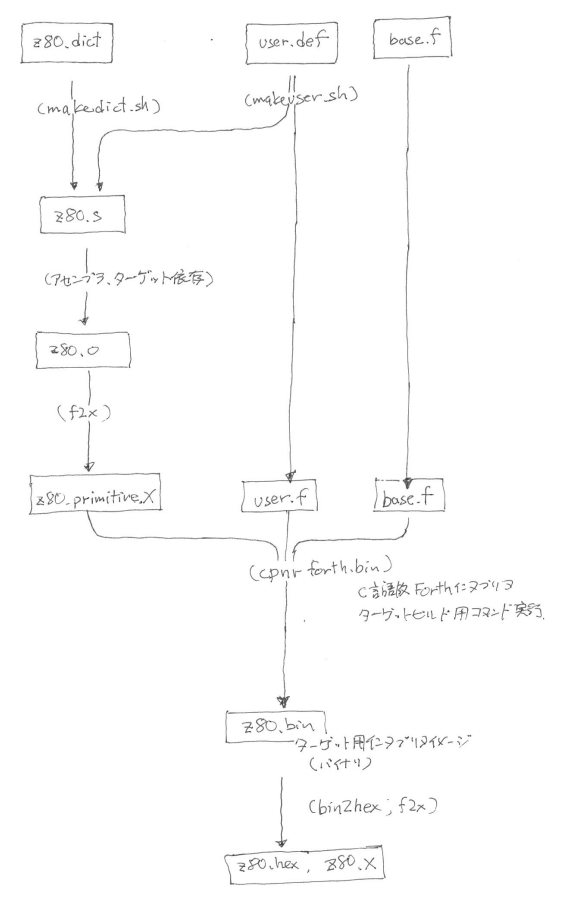 z80.dict
user.def
base.f
(makedict.sh)
(makeuser.sh)
z80.s
(アセンブラ、ターゲット依存)
z80.o
(f2x)
z80_primitive.X
user.f
base.f
(cpnr forth.bin)
C言語版Forthインタプリタ
ターゲットビルド用コマンド実行.
z80.bin
ターゲット用インタプリタイメージ
(バイナリ)
(bin2hex; f2x)
z80.hex, z80.X